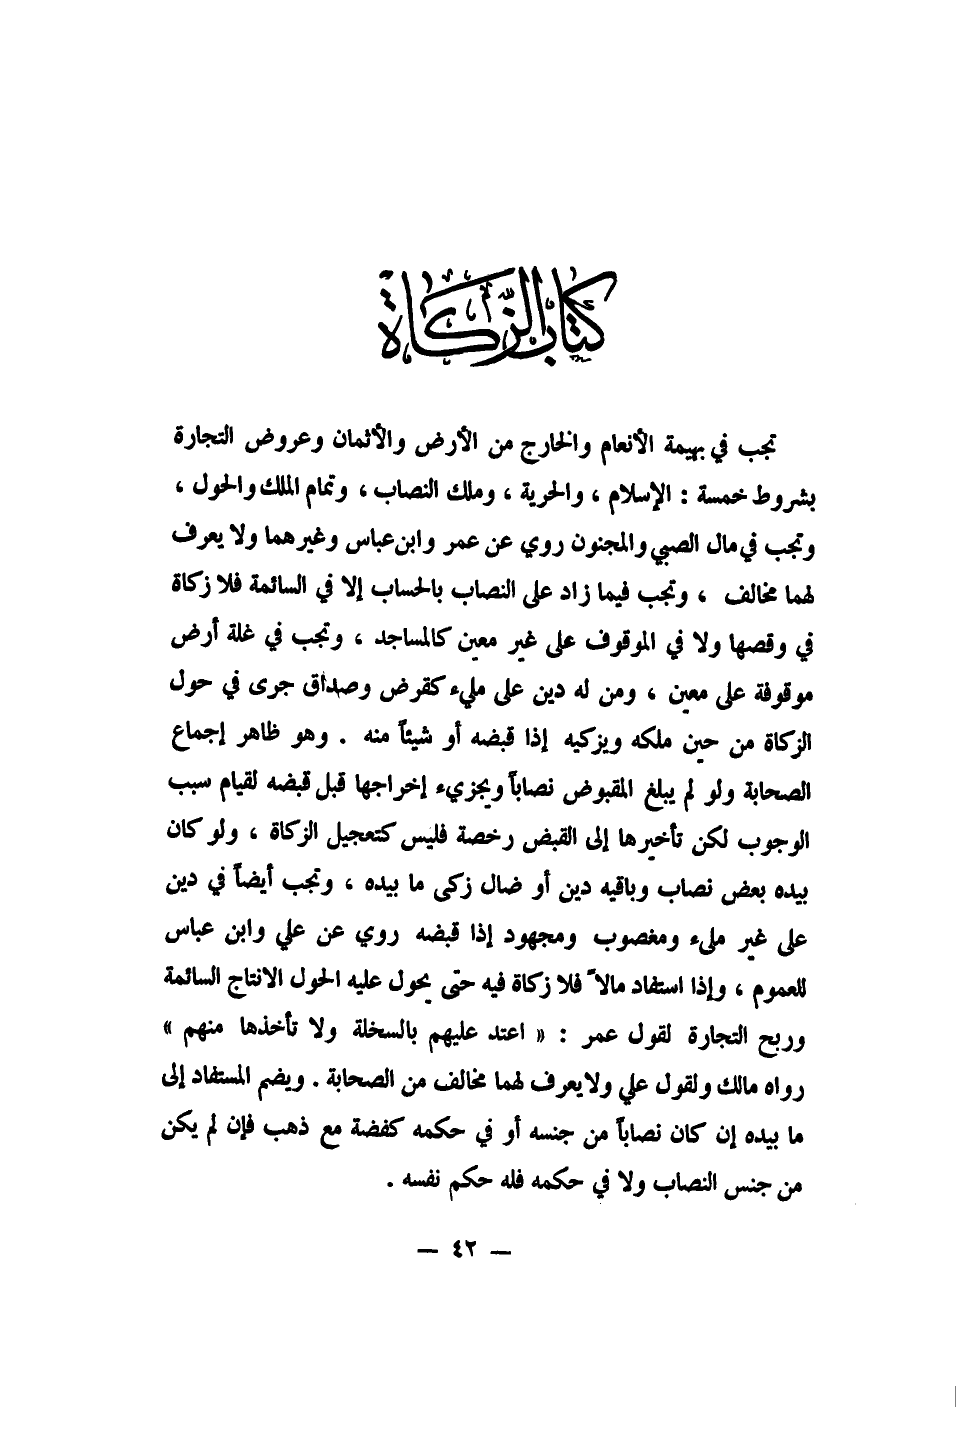 كتاب الزَّكَاة
تجب في بهيمة الأنعام والخارج من الأرض والأثمان وعروض التجارة
بشروط خمسة : الإسلام ، والحرية ، وملك النصاب ، وتمام الملك والحول ،
وتجب في مال الصبي والمجنون روي عن عمر وابن عباس وغيرهما ولا يعرف
لهما مخالف ، وتجب فيما زاد على النصاب بالحساب إلا في السائمة فلا زكاة
في وقصها ولا في الموقوف على غير معين كالمساجد ، وتجب في غلة أرض
موقوفة على معين ، ومن له دين على مليء كقرض وصداق جرى في حول
الزكاة من حين ملكه ويزكيه إذا قبضه أو شيئاً منه . وهو ظاهر إجماع
الصحابة ولو لم يبلغ المقبوض نصاباً ويجزيء إخراجها قبل قبضه لقيام سبب
الوجوب لكن تأخيرها إلى القبض رخصة فليس كتعجيل الزكاة ، ولو كان
بيده بعض نصاب وباقيه دين أو ضال زكى ما بيده ، وتجب أيضاً في دين
على غير مليء ومغصوب ومجهود إذا قبضه روي عن علي وابن عباس
للعموم ، وإذا استفاد مالاً فلا زكاة فيه حتى يحول عليه الحول الانتاج السائمة
وربح التجارة لقول عمر : « اعتد عليهم بالسخلة ولا تأخذها منهم »
رواه مالك ولقول علي ولا يعرف لهما مخالف من الصحابة . ويضم المستفاد إلى
ما بيده إن كان نصاباً من جنسه أو في حكمه كفضة مع ذهب فإن لم يكن
من جنس النصاب ولا في حكمه فله حكم نفسه .
— ٤٢ —